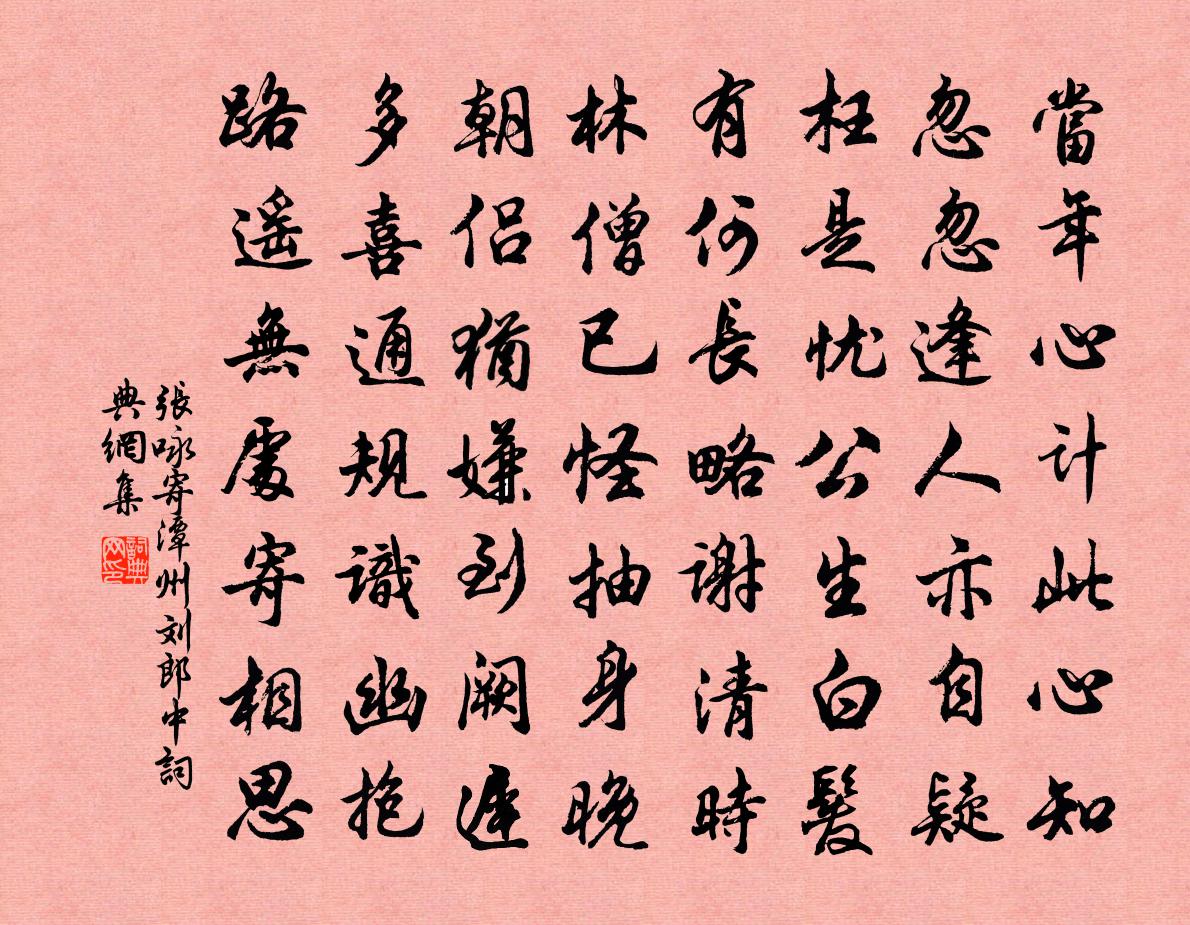 當年心計此心知
忽忽逢人亦自疑
枉是忧公生白髮
有何長略謝清時
林僧已怪抽身晚
朝侣猶嫌到阙遲
多喜通規識幽抱
路遥無處寄相思
張咏寄漳州刘郎中詞
典網集
詞典
网印